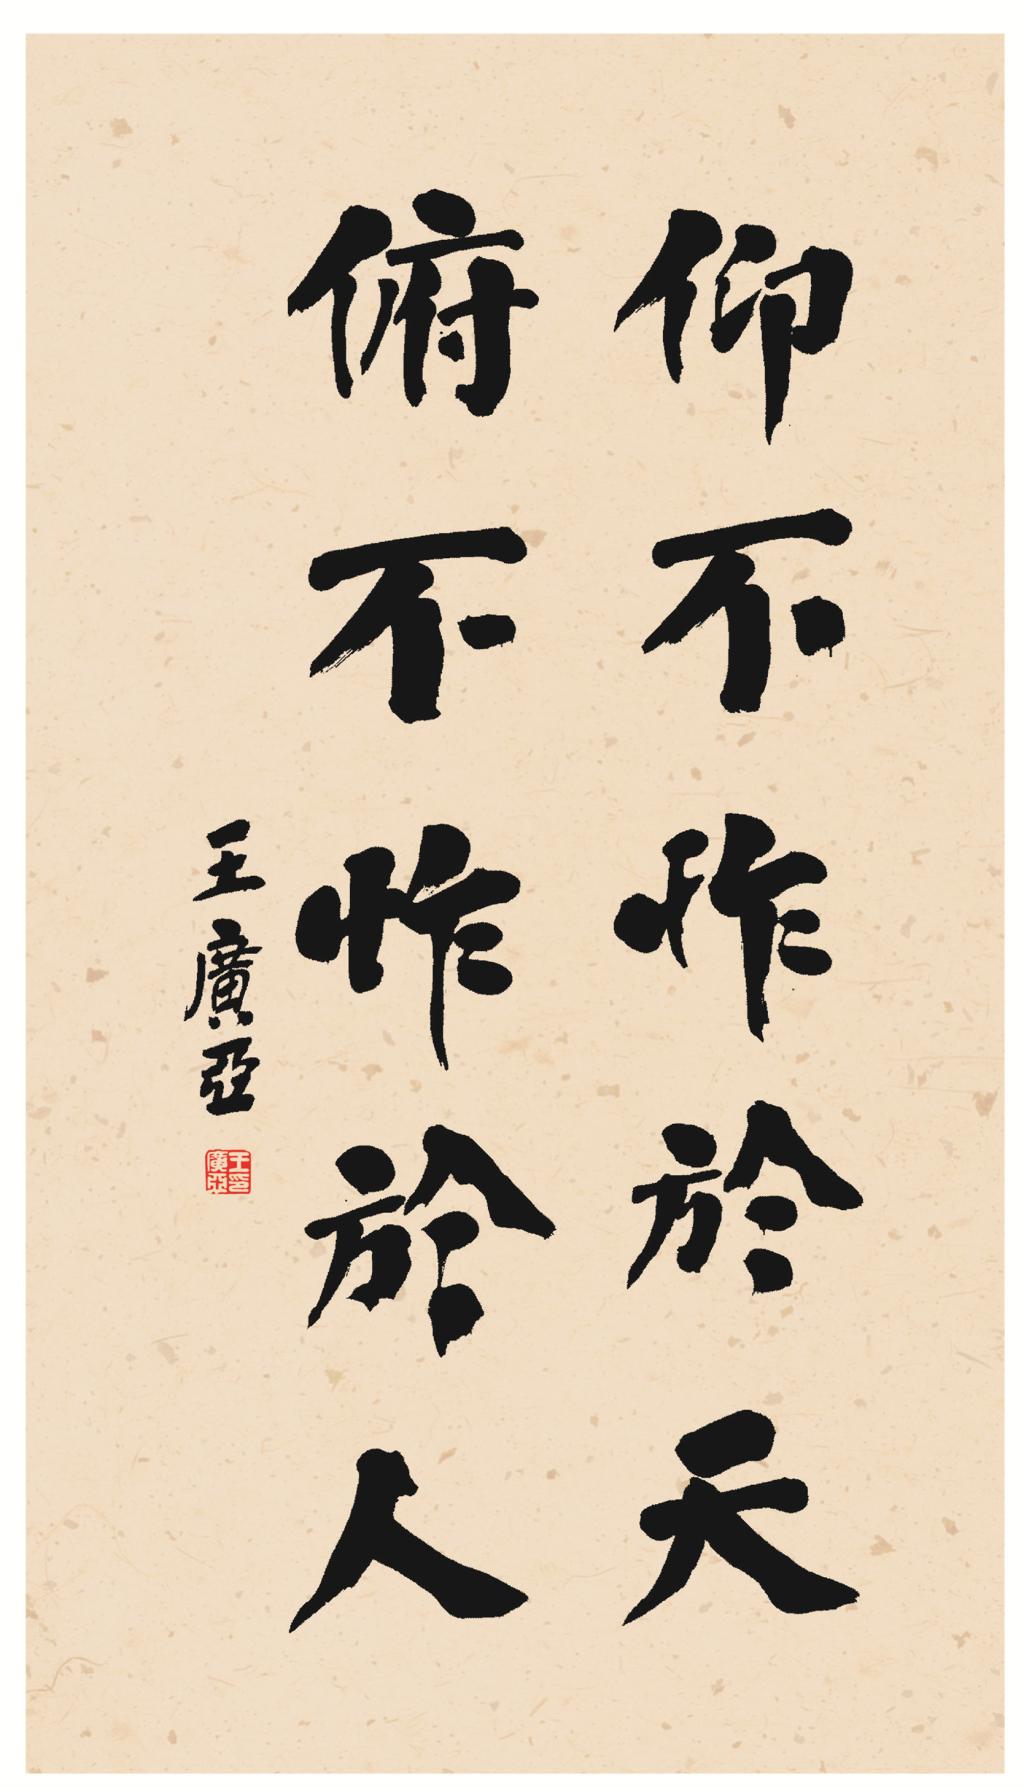 仰不怍於天
俯不怍於人
王廣亞
王廣亞印